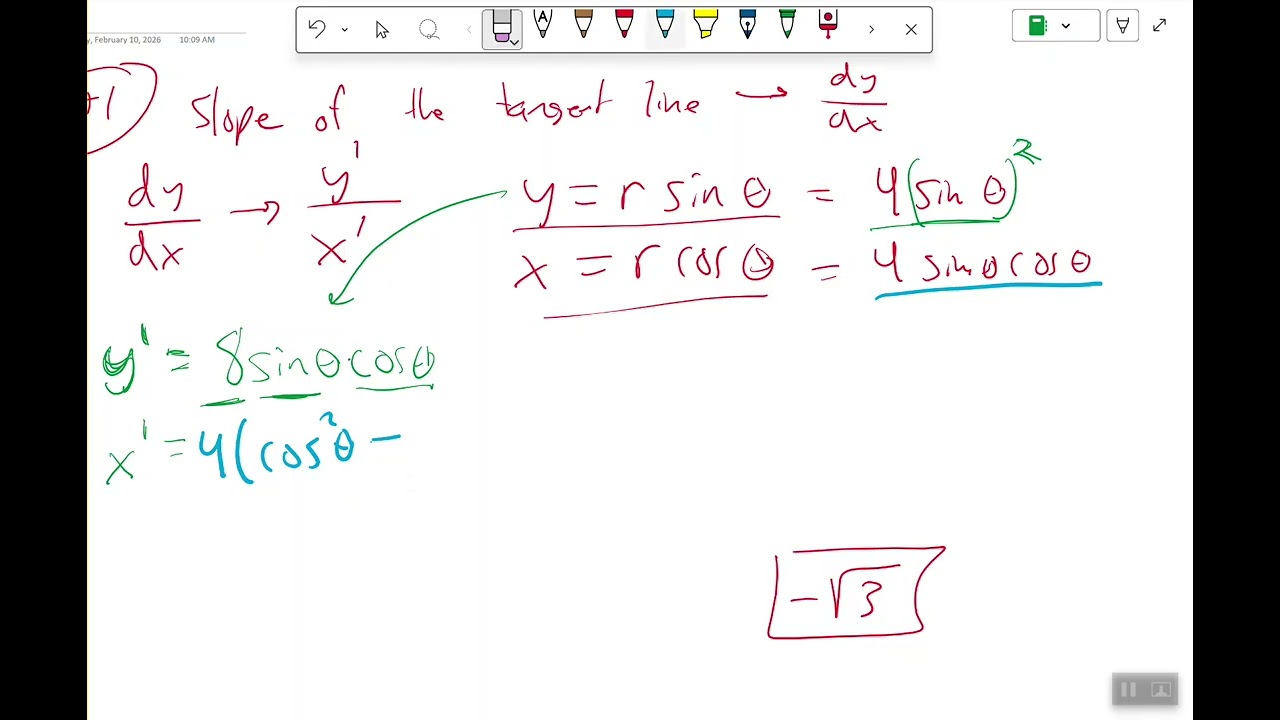 y, February 10, 2026 10:09 AM
+1 Slope of the tangent line → dy/dx
dy/dx → y'/x'
y = r sin θ = 4(sin θ)²
x = r cos θ = 4 sin θ cos θ
y' = 8 sin θ · cos θ
x' = 4(cos²θ −
−√3